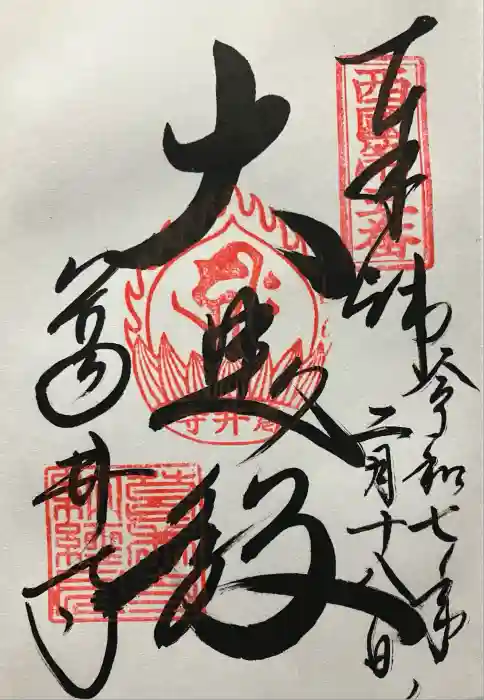 西國第五番
奉拝
令和七年
二月十八日
大悲殿
葛井寺
葛井寺